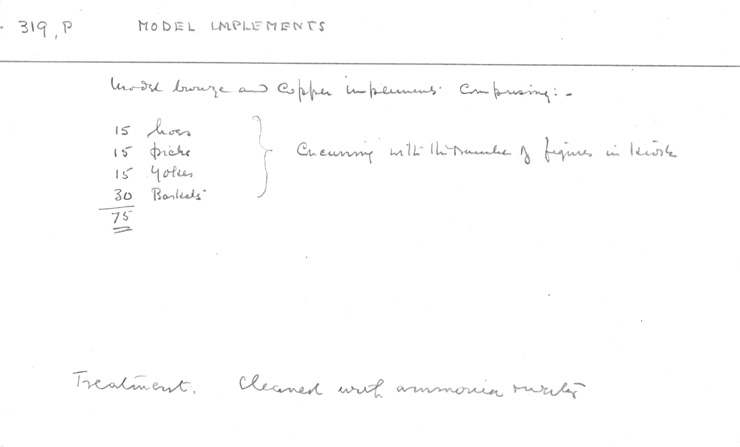 319, P MODEL IMPLEMENTS
Model bronze and Copper implements Comprising:-
15 hoes
15 picks
15 Yokes
30 Baskets
Concurring with the number of figures in kiosk
75
Treatment. Cleaned with ammonia water